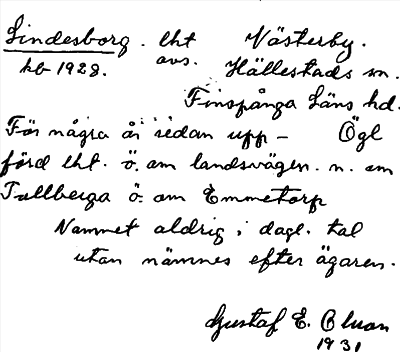 Lindesborg. lht Västerby.
kb 1928. avs. Hällestads sn.
Finspånga Läns hd.
För några år sedan upp- Ögl
förd lht. ö. om landsvägen. n. om
Tallberga ö. om Emmetorp
Namnet aldrig i dagl. tal
utan nämnes efter ägaren.
Gustaf E. Olsson
1931